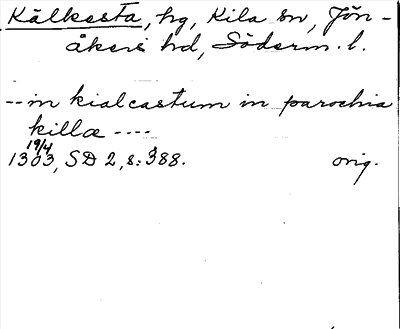 Kälkesta, hg, Kila sn, Jön-
åkers hd, Söderm. l.
-- in kialcastum in parochia
killa ----
19/4
1303, SD 2, s: 388.
orig.